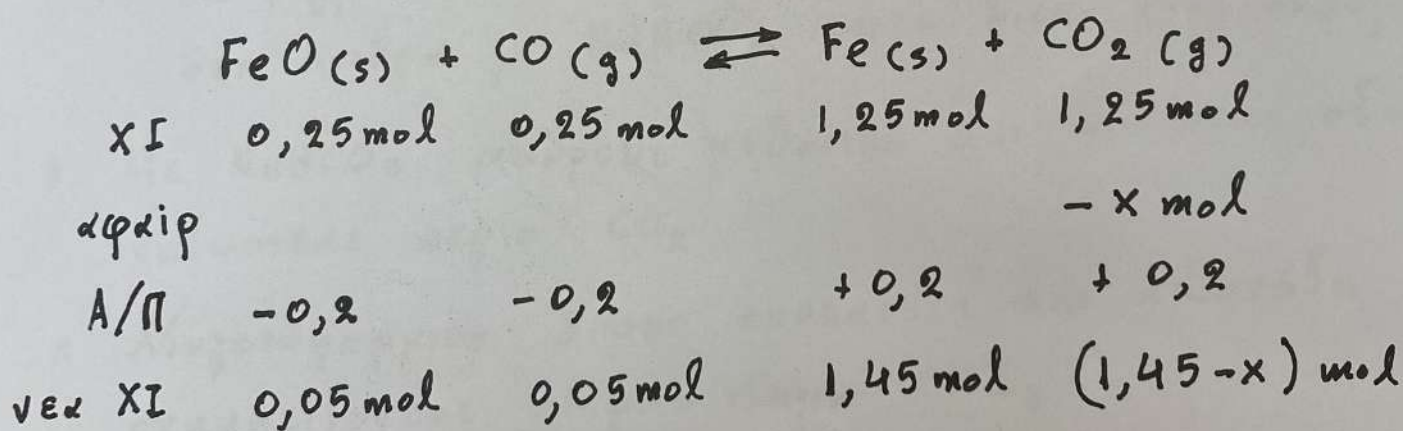 FeO(s) + CO(g) ⇌ Fe(s) + CO₂(g)
ΧΙ 0,25mol 0,25mol 1,25mol 1,25mol
αφαιρ - x mol
Α/Π -0,2 -0,2 +0,2 +0,2
νεα ΧΙ 0,05mol 0,05mol 1,45mol (1,45-x) mol